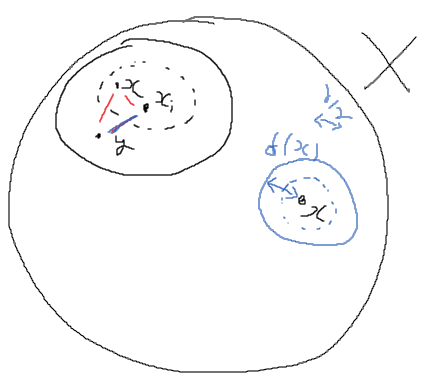 X
x
xᵢ
y
δ/2
δ(x)
x